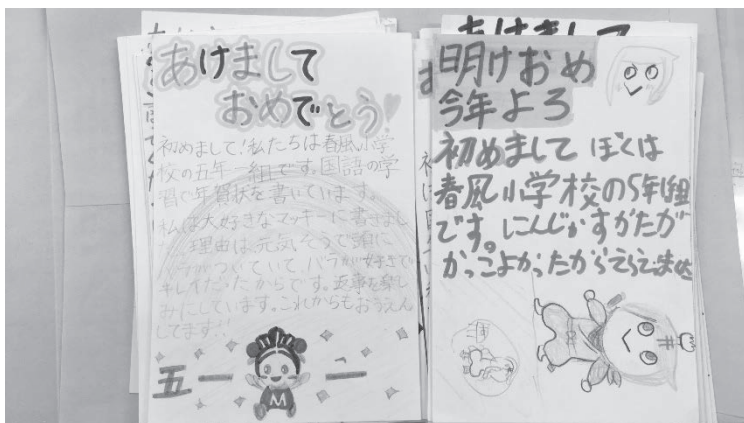 あけまして
おめでとう
初めまして!私たちは春風小学
校の五年一組です。国語の学
習で年賀状を書いています。
私は大好きなマッキーに書きまし
た。理由は元気そうで頭に
バラがついていて、バラが好きで
キレイだったからです。返事を楽し
みにしています。これからもおうえん
してます!!
五一 一
M
明けおめ
今年よろ
初めまして ぼくは
春風小学校の5年1組
です。にんじゃすがたが
かっこよかったからえらびました